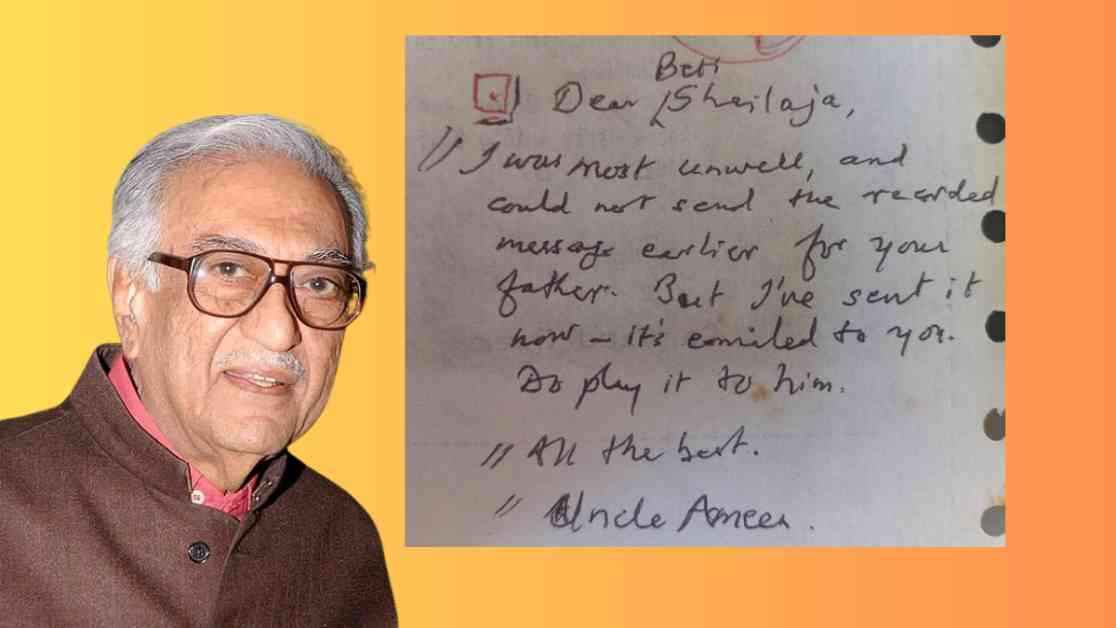 Beti
Dear Shailaja,
// I was most unwell, and
could not send the recorded
message earlier for your
father. But I've sent it
now – it's emailed to you.
Do play it to him.
// All the best.
// Uncle Ameen.